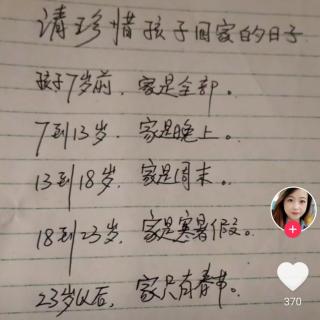 请珍惜孩子回家的日子
孩子7岁前，家是全部。
7到13岁，家是晚上。
13到18岁，家是周末。
18到23岁，家是寒暑假。
23岁以后，家只有春节。
370